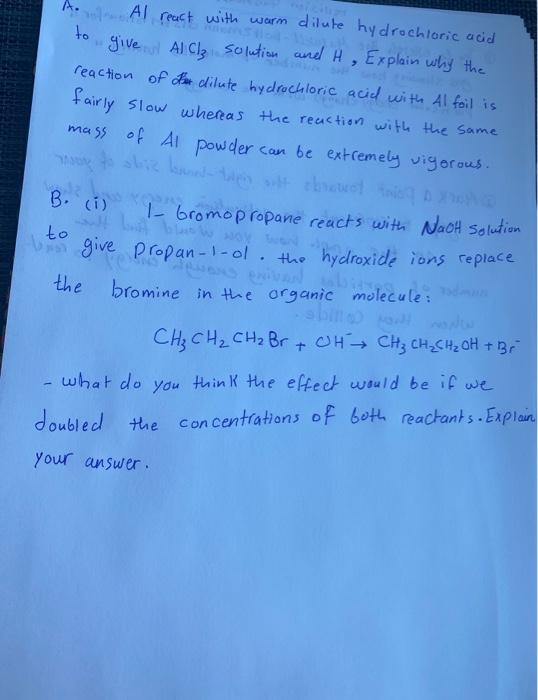 A. Al react with warm dilute hydrochloric acid
to give AlCl3 solution and H, Explain why the
reaction of dilute hydrochloric acid with Al foil is
fairly slow whereas the reaction with the same
mass of Al powder can be extremely vigorous.
B. (i) 1- bromopropane reacts with NaOH solution
to give propan-1-ol. the hydroxide ions replace
the bromine in the organic molecule:
CH3 CH2 CH2 Br + OH⁻ → CH3 CH2 CH2 OH + Br⁻
- what do you think the effect would be if we
doubled the concentrations of both reactants. Explain
your answer.